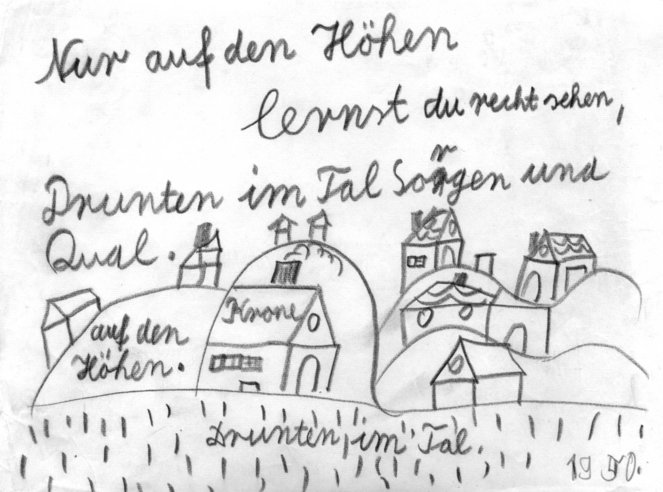 Nur auf den Höhen
lernst du recht sehen,
Drunten im Tal Sorgen und
Qual.
Krone
auf den
Höhen.
Drunten, im Tal.